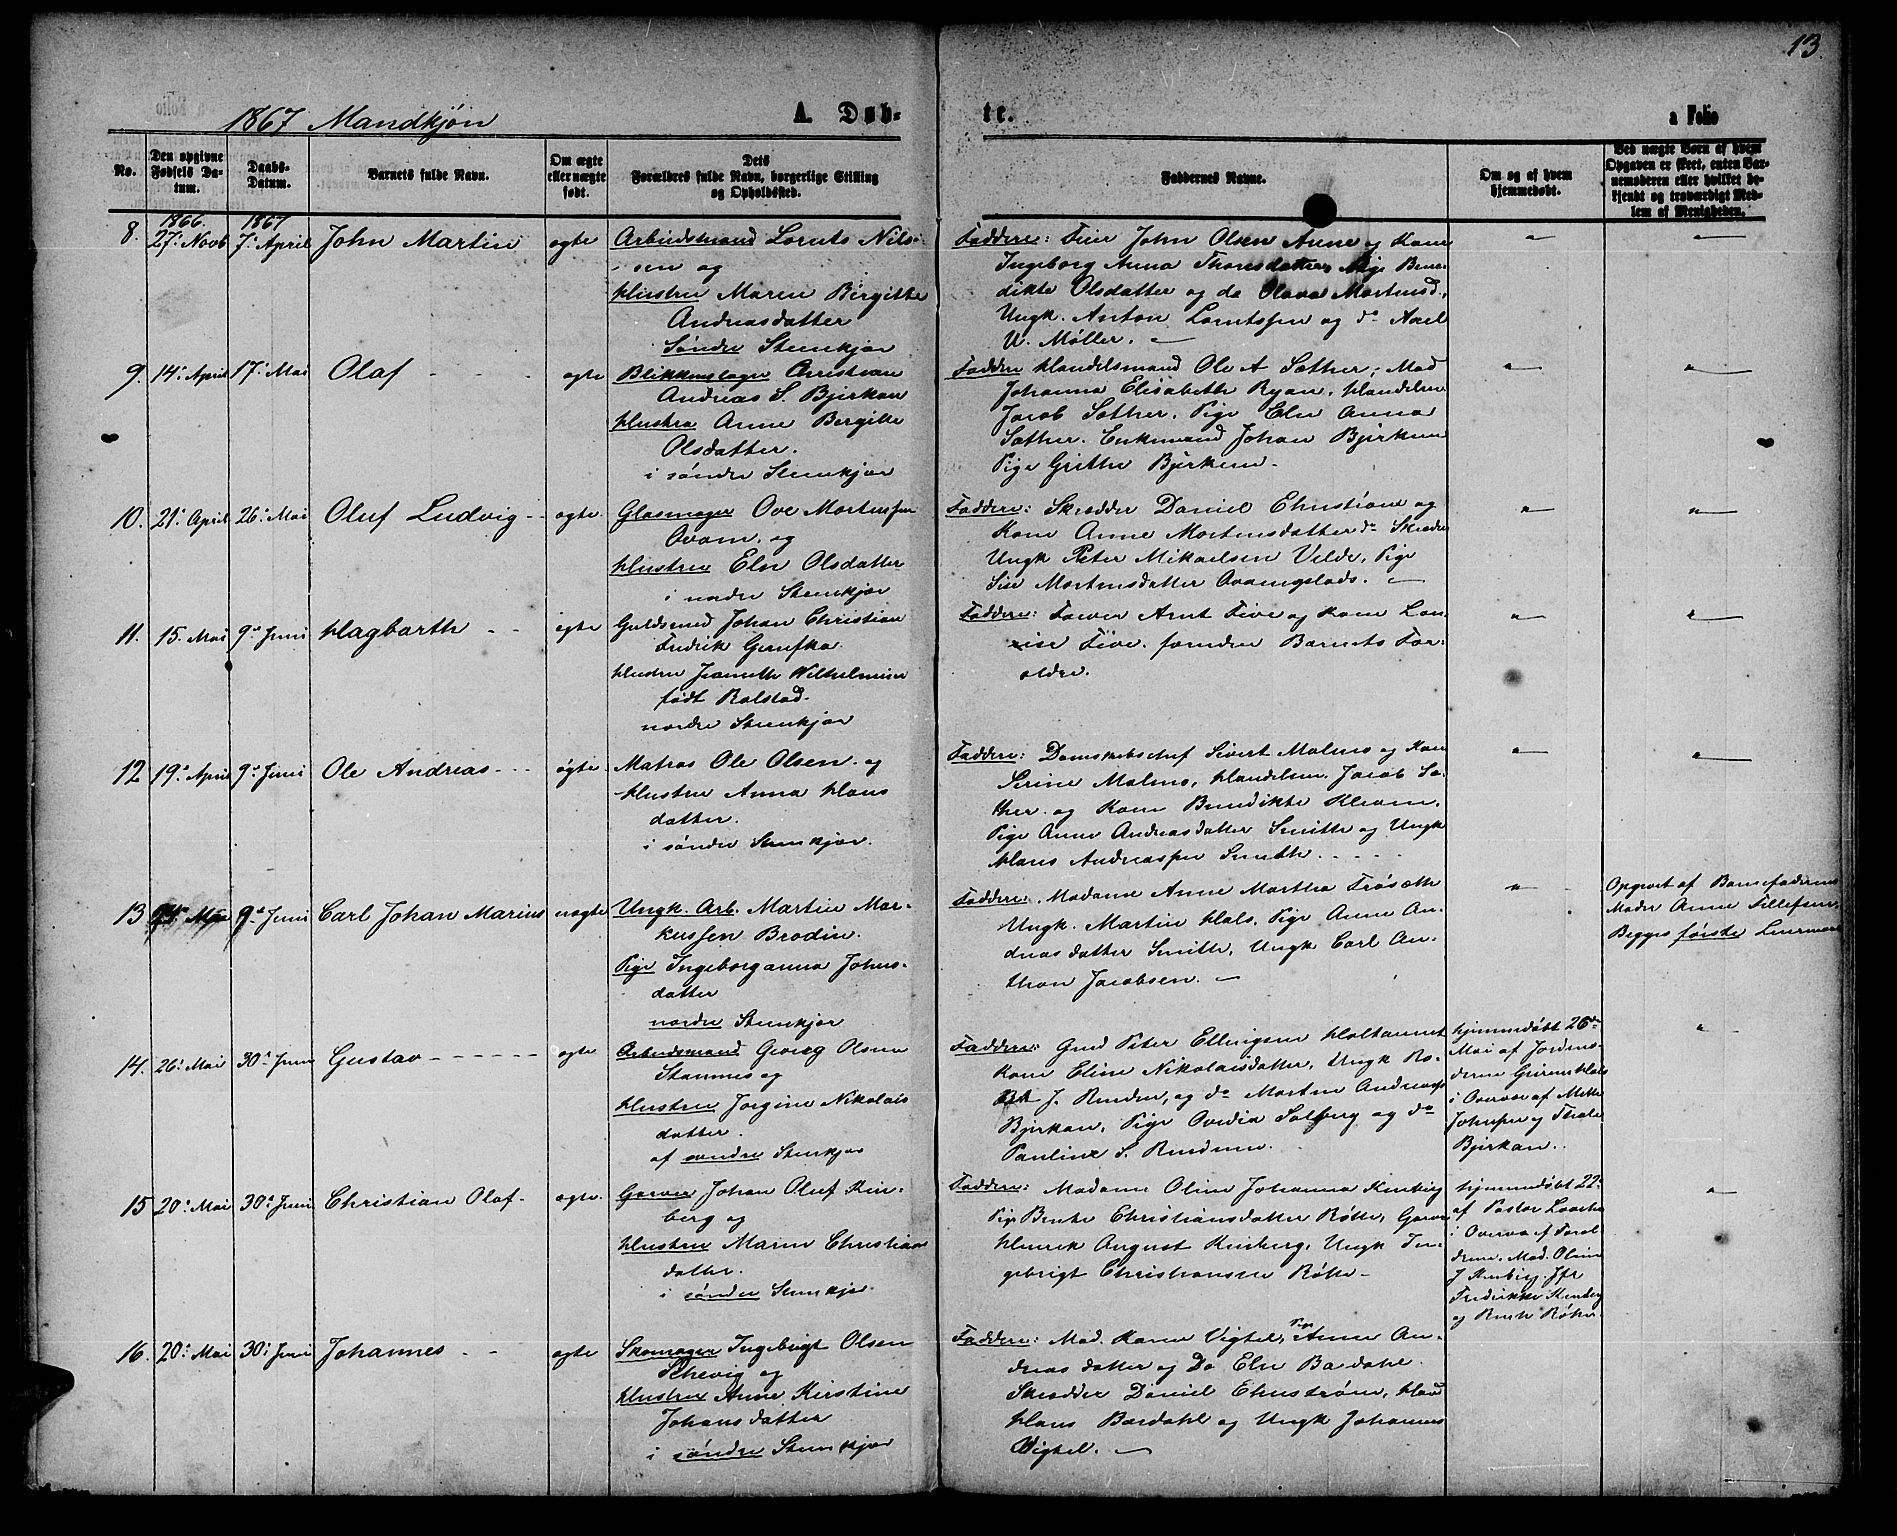 13.
1867 Mandkjøn
A. Døb-
te.
a Folio
No.
Den opgivne
Fødsels Da-
tum.
Daabs-
Datum.
Barnets fulde Navn.
Om ægte
eller uægte
født.
Dets
Forældres fulde Navn, borgerlige Stilling
og Opholdssted.
Faddernes Navne.
Om og af hvem
hjemmedøbt.
Ved uægte Børn af hvem
Opgaven er skeet, enten Bar-
nemoderen eller hvilket be-
kjendt og troværdigt Med-
lem af Menigheden.
1866 1867
8. 27. Novb 7. April John Martin ægte Arbeidsmand Lornts Nils-
sen og
Hustru Maren Bergitte
Andreasdatter
Søndre Steenkjær
Faddere: John Olsen og Kone
Ingeborg Anna Pige Bene-
dikte Olsdatter og do Olava Mortensd.
Ungk. Anton Lorntssen og do Axel
W. Møller.
9. 14. April 17. Mai Olaf ægte Blikkenslager Christian
Andreas S. Bjerkan
Hustru Anne Bergitte
Olsdatter.
i søndre Steenkjær
Faddere Handelsmand Ole A Sæther, Mad
Johanna Elisabeth Ryan, Handelsm
Jacob Sæther, Pige Elen Anna
Sæther. Enkemand Johan Bjerken
Pige Grethe Bjerkem.
10. 21. April 26. Mai Oluf Ludvig ægte Glasmager Ove Mortensen
Ovam. og
Hustru Elen Olsdatter
i nordre Steenkjær
Faddere: Skrædder Daniel og
Kone Anne Mortensdatter do
Ungk Peter Mikaelsen Velde, Pige
Mortensdatter
11. 15. Mai 9. Juni Hagbarth ægte Guldsmed Johan Christian
Fredrik
Hustru Jeaneth Wilhelmine
født Rolstad.
nordre Steenkjær
Faddere: Farver Arnt Five og Kone Lou-
ise Five. foruden Barnets For-
ældre.
12 19. April 9. Juni Ole Andreas ægte Matros Ole Olsen. og
Hustru Anna Hans
datter.
i søndre Steenkjær.
Faddere: Sivert Malmo og Kone
Serine Malmo, Handelsm. Jacob Sæ-
ther. og Kone Benedikte
Pige Anne Andreasdatter Smith og Ungk
Hans Andreassen Smith
13 9. Juni Carl Johan Marius uægte Ungk. Arb. Martin Mar-
kussen Brodin.
Pige Ingeborganna Johns-
datter
nordre Steenkjær
Faddere: Madame Anne Martha
Ungk. Martin Hals, Pige Anne An-
dreasdatter Smith, Ungk Carl An-
thon Jacobsen.
Opgivet af Barnefaderens
Moder Anne
Begges første
14. 26. Mai 30. Juni Gustav ægte Arbeidsmand Georg Olsen
Stamnes og
Hustru Jørgine Nikolais
datter.
af søndre Steenkjær
Faddere: Peter Ellingsen
Kone Eline Nikolaisdatter, Ungk
J. og do Morten Andreas
Bjerkan, Pige Ovidia Solberg og do
Pauline S.
hjemmedøbt 26de
Mai af Jordmo-
deren
i Overvær af Mette
og
Bjerkan.
15 20. Mai 30. Juni Christian Olaf ægte. Garver Johan Oluf Kin-
berg og
Hustru Maren Christians
datter.
i søndre Steenkjær.
Faddere: Madame Oline Johanna Kinberg
Pige Bente Christiansdatter Røhte, Garver
Henrik August Kinberg, Ungk In-
gebrigt Christiansen Røhte
hjemmedøbt 22.
af Pastor
i Overvær af Foræl-
drene, Mad. Oline
J Kinberg. Jfr
Fredrikke Kinberg
og Bente Røhte
16. 20. Mai 30. Juni Johannes ægte Skomager Ingebrigt Olsen
Schevig og
Hustru Anne Kirstine
Johansdatter
i søndre Steenkjær
Faddere: Mad. Karen Vigtel, Pige Anne An-
dreasdatter og Do Elen Bardahl.
Skrædder Daniel
Hans Bardahl og Ungk Johannes
Vigtel.